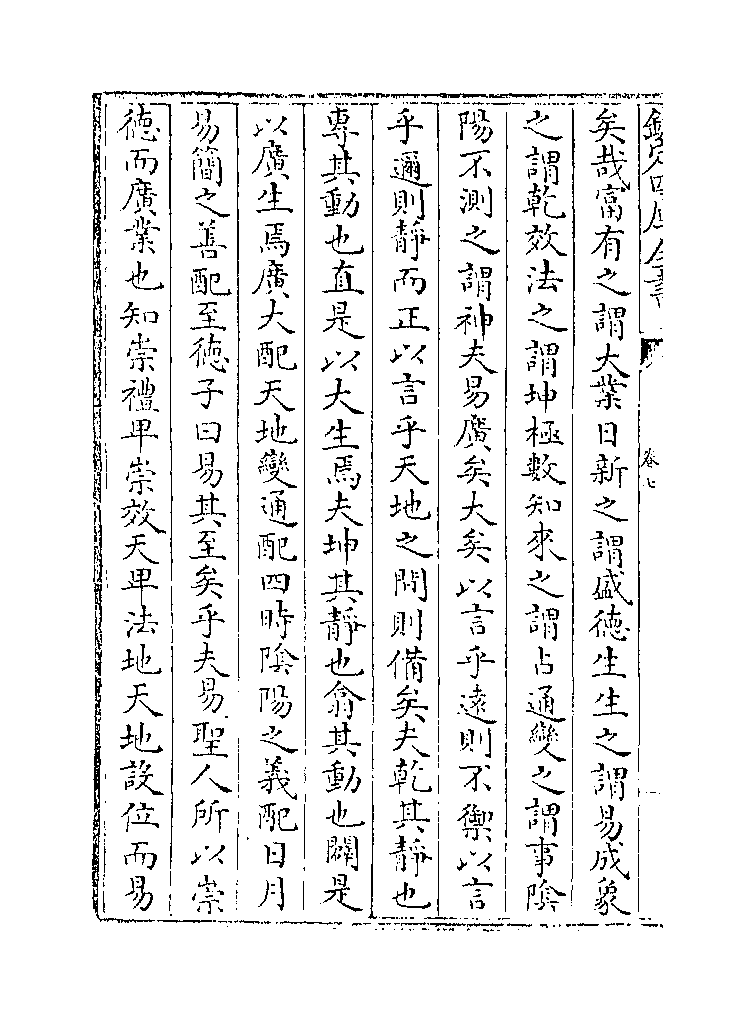 欽定四庫全書
卷七
矣哉富有之謂大業日新之謂盛德生生之謂易成象
之謂乾效法之謂坤極數知來之謂占通變之謂事陰
陽不測之謂神夫易廣矣大矣以言乎遠則不禦以言
乎邇則靜而正以言乎天地之間則備矣夫乾其靜也
專其動也直是以大生焉夫坤其靜也翕其動也闢是
以廣生焉廣大配天地變通配四時陰陽之義配日月
易簡之善配至德子曰易其至矣乎夫易聖人所以崇
德而廣業也知崇禮卑崇效天卑法地天地設位而易